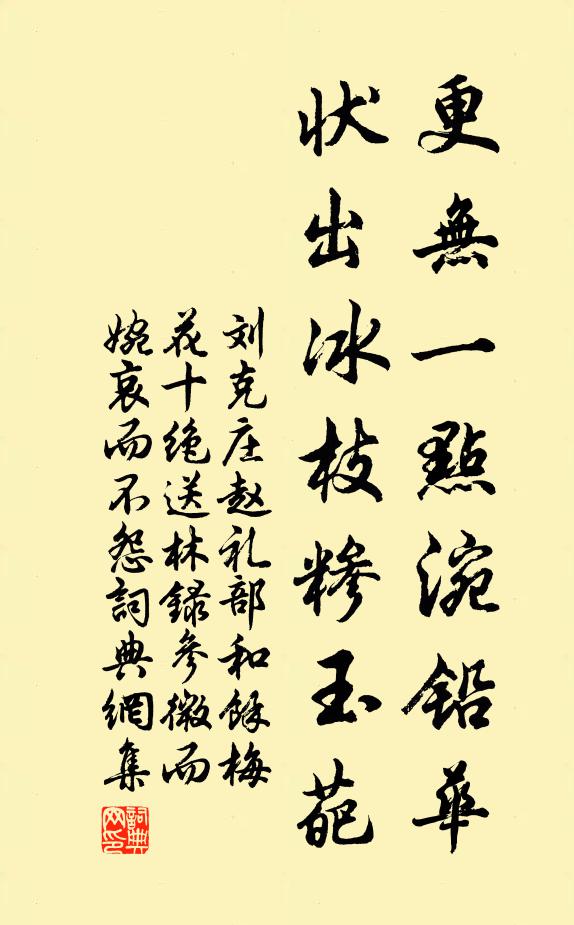 更無一點涴鉛華
状出冰枝糝玉葩
刘克庄赵礼部和馀梅
花十绝送林録參微而
婉哀而不怨詞典網集
詞典网印